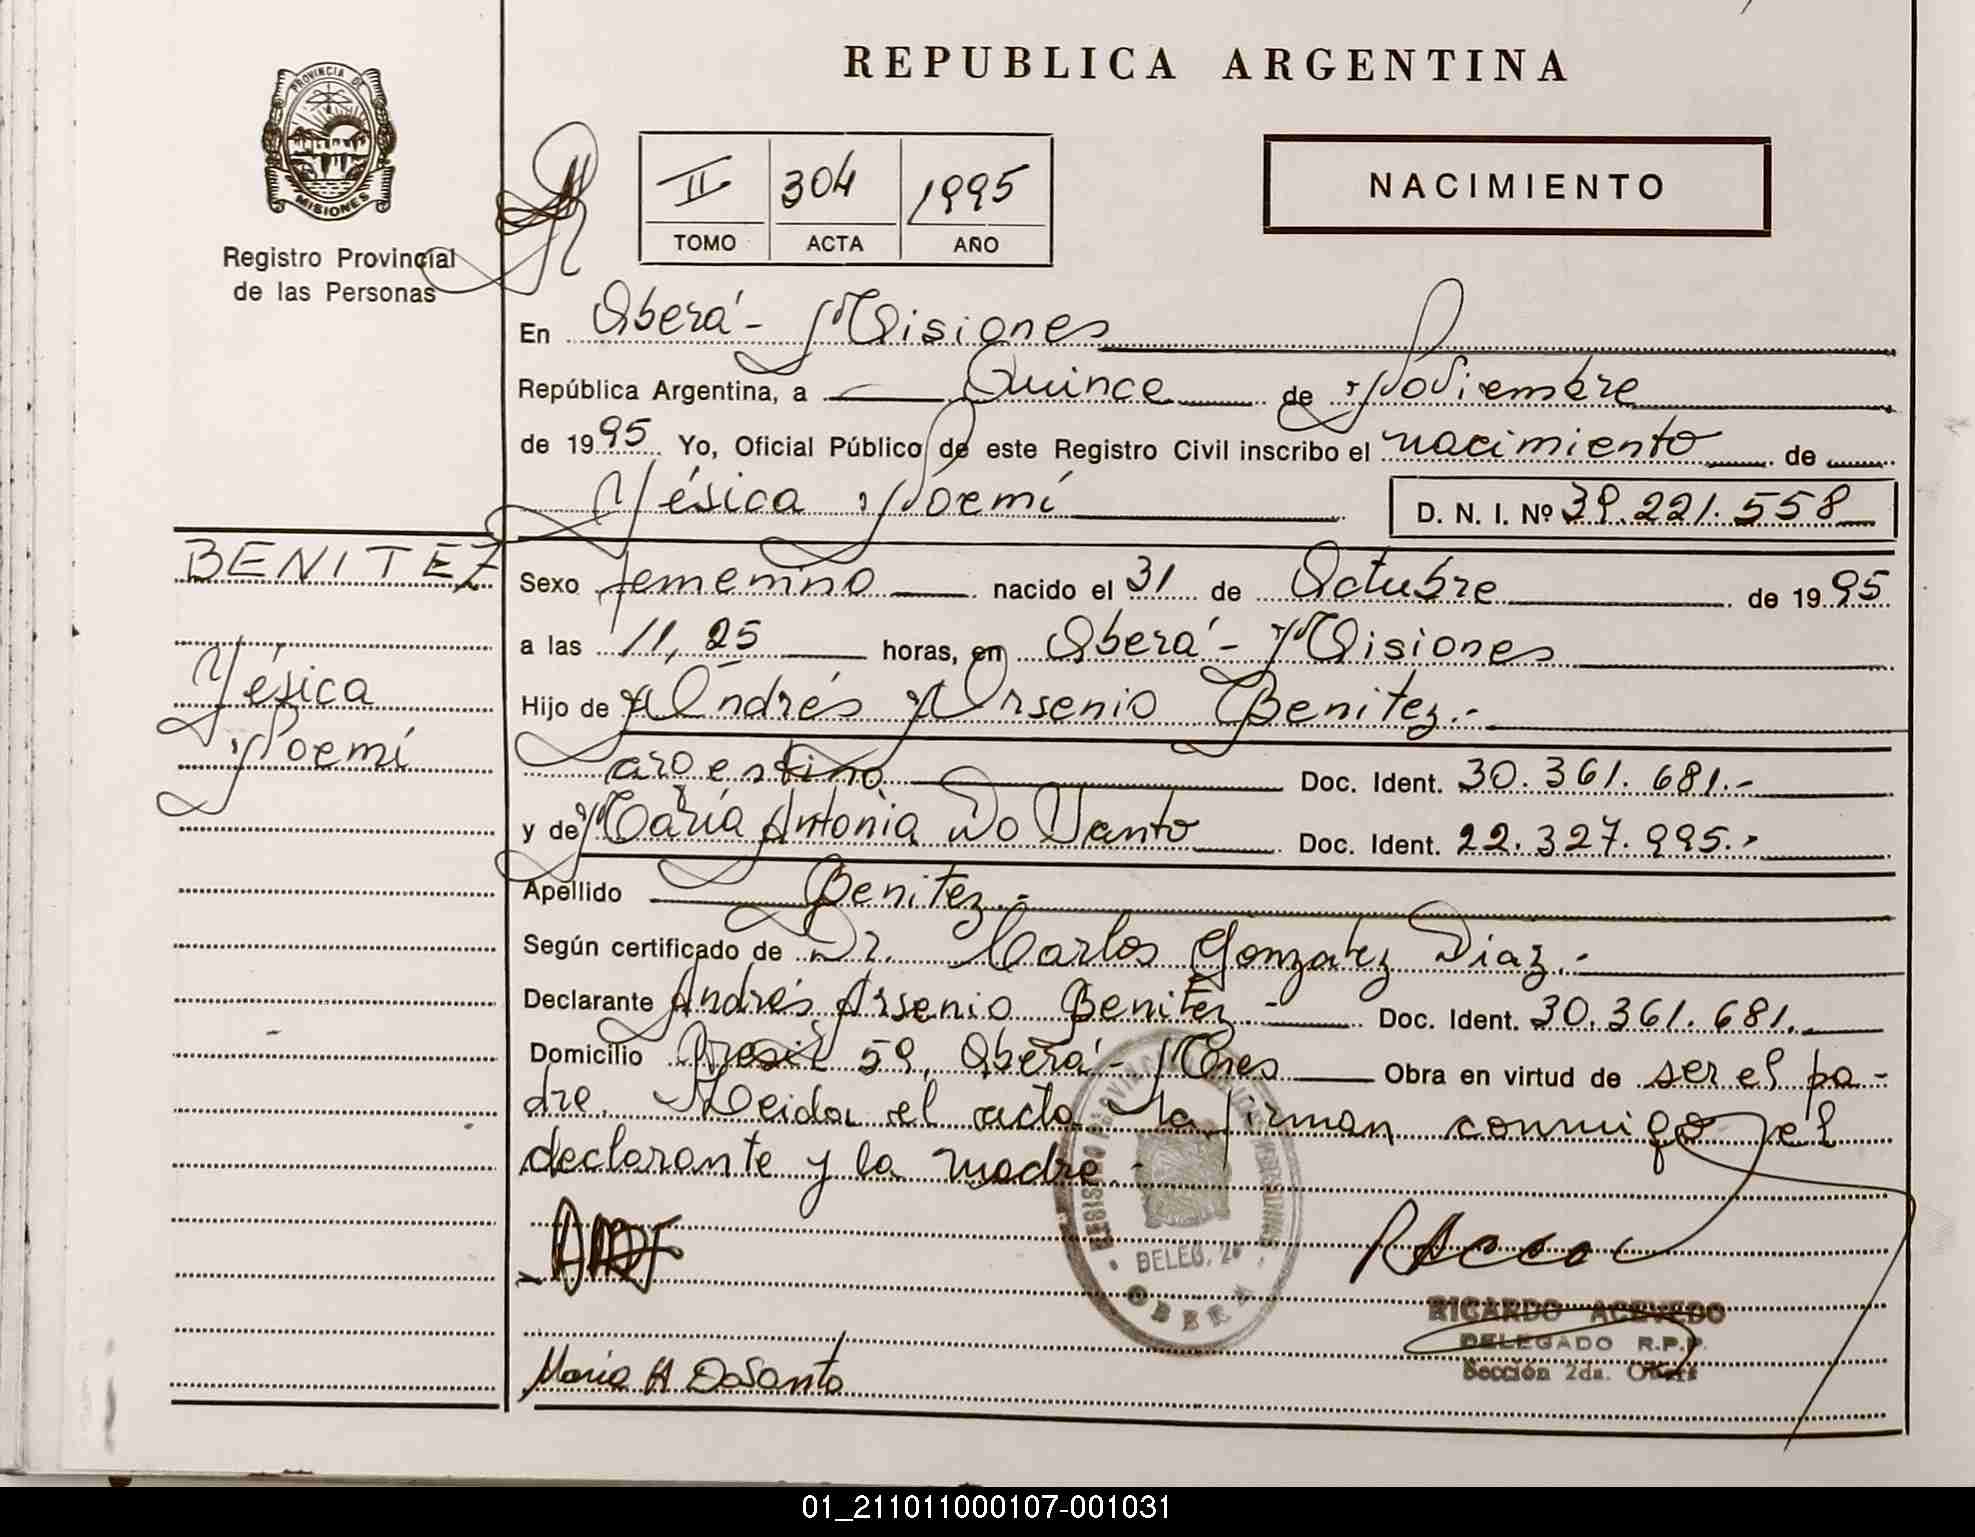 REPUBLICA ARGENTINA
PROVINCIA DE
MISIONES
Registro Provincial
de las Personas
II 304 1995
TOMO ACTA AÑO
NACIMIENTO
En Oberá - Misiones
República Argentina, a Quince de Noviembre
de 1995 Yo, Oficial Público de este Registro Civil inscribo el nacimiento de
Yésica Noemí D. N. I. Nº 39.221.558
BENITEZ
Yésica
Noemí
Sexo femenino nacido el 31 de Octubre de 1995
a las 11,25 horas, en Oberá - Misiones
Hijo de Andrés Arsenio Benitez.-
argentino Doc. Ident. 30.361.681.-
y de María Antonia Do Santo Doc. Ident. 22.327.995.-
Apellido Benitez.-
Según certificado de Dr. Carlos Gonzalez Diaz.-
Declarante Andrés Arsenio Benitez - Doc. Ident. 30.361.681.
Domicilio Brasil 59, Oberá - Mnes Obra en virtud de ser el pa-
dre. Leida el acta la firman conmigo el
declarante y la madre.-
REGISTRO PROVINCIAL DE LAS PERSONAS
DELEG. 2ª
OBERA
RICARDO ACEVEDO
DELEGADO R.P.P.
Sección 2da. Oberá
Maria A DoSanto
01_211011000107-001031